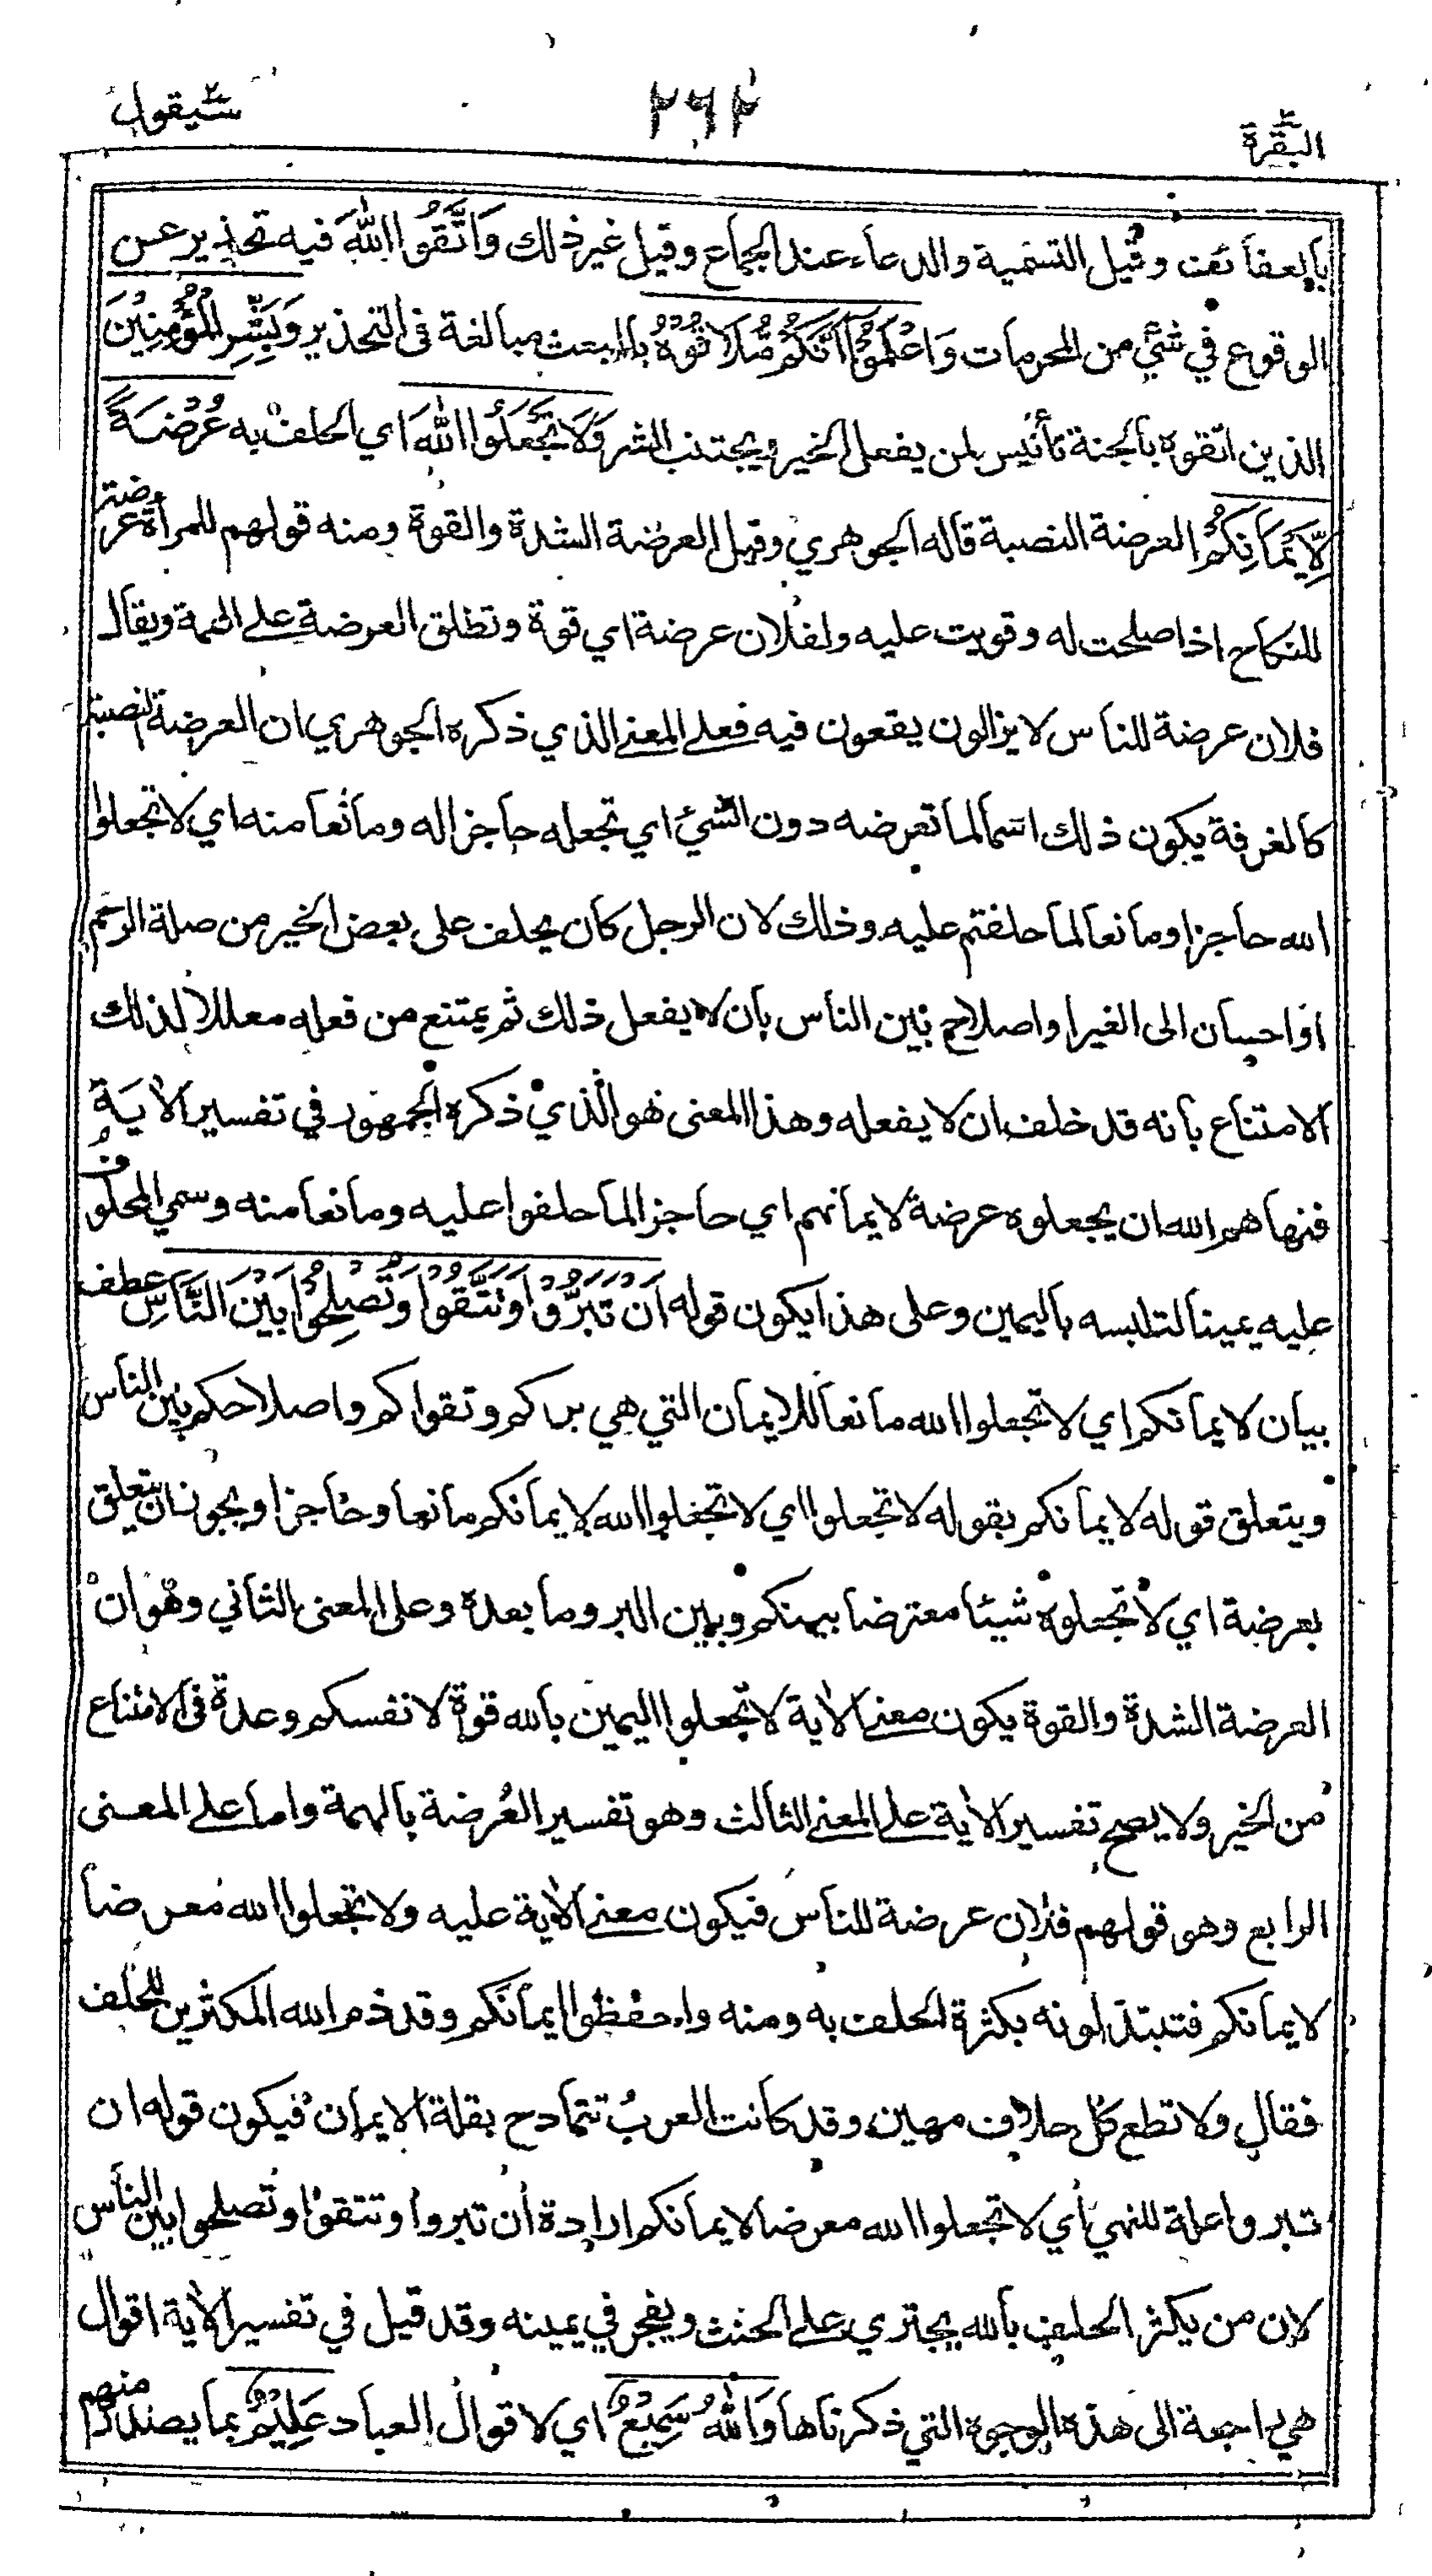 البقرة ٢
٢٦٢
سيقول ٢
بالعفائف وقيل التسمية والدعاء عند الجماع وقيل غير ذلك وَاتَّقُوا اللّٰهَ فيه تحذير عن
الوقوع في شئ من المحرمات وَاعْلَمُوْا اَنَّكُمْ مُّلَاقُوْهُ بالبعث مبالغة فى التحذير وَبَشِّرِ الْمُؤْمِنِيْنَ
الذين اتقوه بالجنة تأنيس لمن يفعل الخير ويجتنب الشر وَلَا تَجْعَلُوا اللّٰهَ اي الحلف به عُرْضَةً
لِّاَيْمَانِكُمْ العرضة النصبة قاله الجوهري وقيل العرضة الشدة والقوة ومنه قولهم للمرأة عرضة
للنكاح اذا صلحت له وقويت عليه ولفلان عرضة اي قوة وتطلق العرضة على الهمة ويقال
فلان عرضة للناس لا يزالون يقعون فيه فعلى المعنى الذي ذكره الجوهري ان العرضة النصبة
كالغرفة يكون ذلك اسما لما تعرضه دون الشئ اي تجعله حاجزا له ومانعا منه اي لا تجعلوا
الله حاجزا ومانعا لما حلفتم عليه وذلك لان الرجل كان يحلف على بعض الخير من صلة الرحم
او احسان الى الغير او اصلاح بين الناس بان لا يفعل ذلك ثم يمتنع من فعله معللا لذلك
الامتناع بانه قد حلف ان لا يفعله وهذا المعنى هو الذي ذكره الجمهور في تفسير الاٰية
فنهاهم الله ان يجعلوه عرضة لايمانهم اي حاجزا لما حلفوا عليه ومانعا منه وسمي المحلوف
عليه يمينا لتلبسه باليمين وعلى هذا يكون قوله اَنْ تَبَرُّوْا وَتَتَّقُوْا وَتُصْلِحُوْا بَيْنَ النَّاسِ عطف
بيان لايمانكم اي لا تجعلوا الله مانعا للايمان التي هي بركم وتقواكم واصلاحكم بين الناس
ويتعلق قوله لايمانكم بقوله لا تجعلوا اي لا تجعلوا الله لايمانكم مانعا وحاجزا ويجوز ان يتعلق
بعرضة اي لا تجعلوه شيئا معترضا بينكم وبين البر وما بعده وعلى المعنى الثاني وهو ان
العرضة الشدة والقوة يكون معنى الاٰية لا تجعلوا اليمين بالله قوة لانفسكم وعدة فى الامتناع
من الخير ولا يصح تفسير الاٰية على المعنى الثالث وهو تفسير العُرضة بالهمة واما على المعنى
الرابع وهو قولهم فلان عرضة للناس فيكون معنى الاٰية عليه ولا تجعلوا الله معرضا
لايمانكم فتبتذلونه بكثرة الحلف به ومنه واحفظوا ايمانكم وقد ذم الله المكثرين للحلف
فقال ولا تطع كل حلاف مهين وقد كانت العرب تتمادح بقلة الايمان فيكون قوله ان
تبروا علة للنهي اي لا تجعلوا الله معرضا لايمانكم ارادة أن تبروا وتتقوا وتصلحوا بين الناس
لان من يكثر الحلف بالله يجتري على الحنث ويفجر في يمينه وقد قيل في تفسير الاٰية اقوال
هي راجعة الى هذه الوجوه التي ذكرناها وَاللّٰهُ سَمِيْعٌ اي لاقوال العباد عَلِيْمٌ بما يصدر منهم